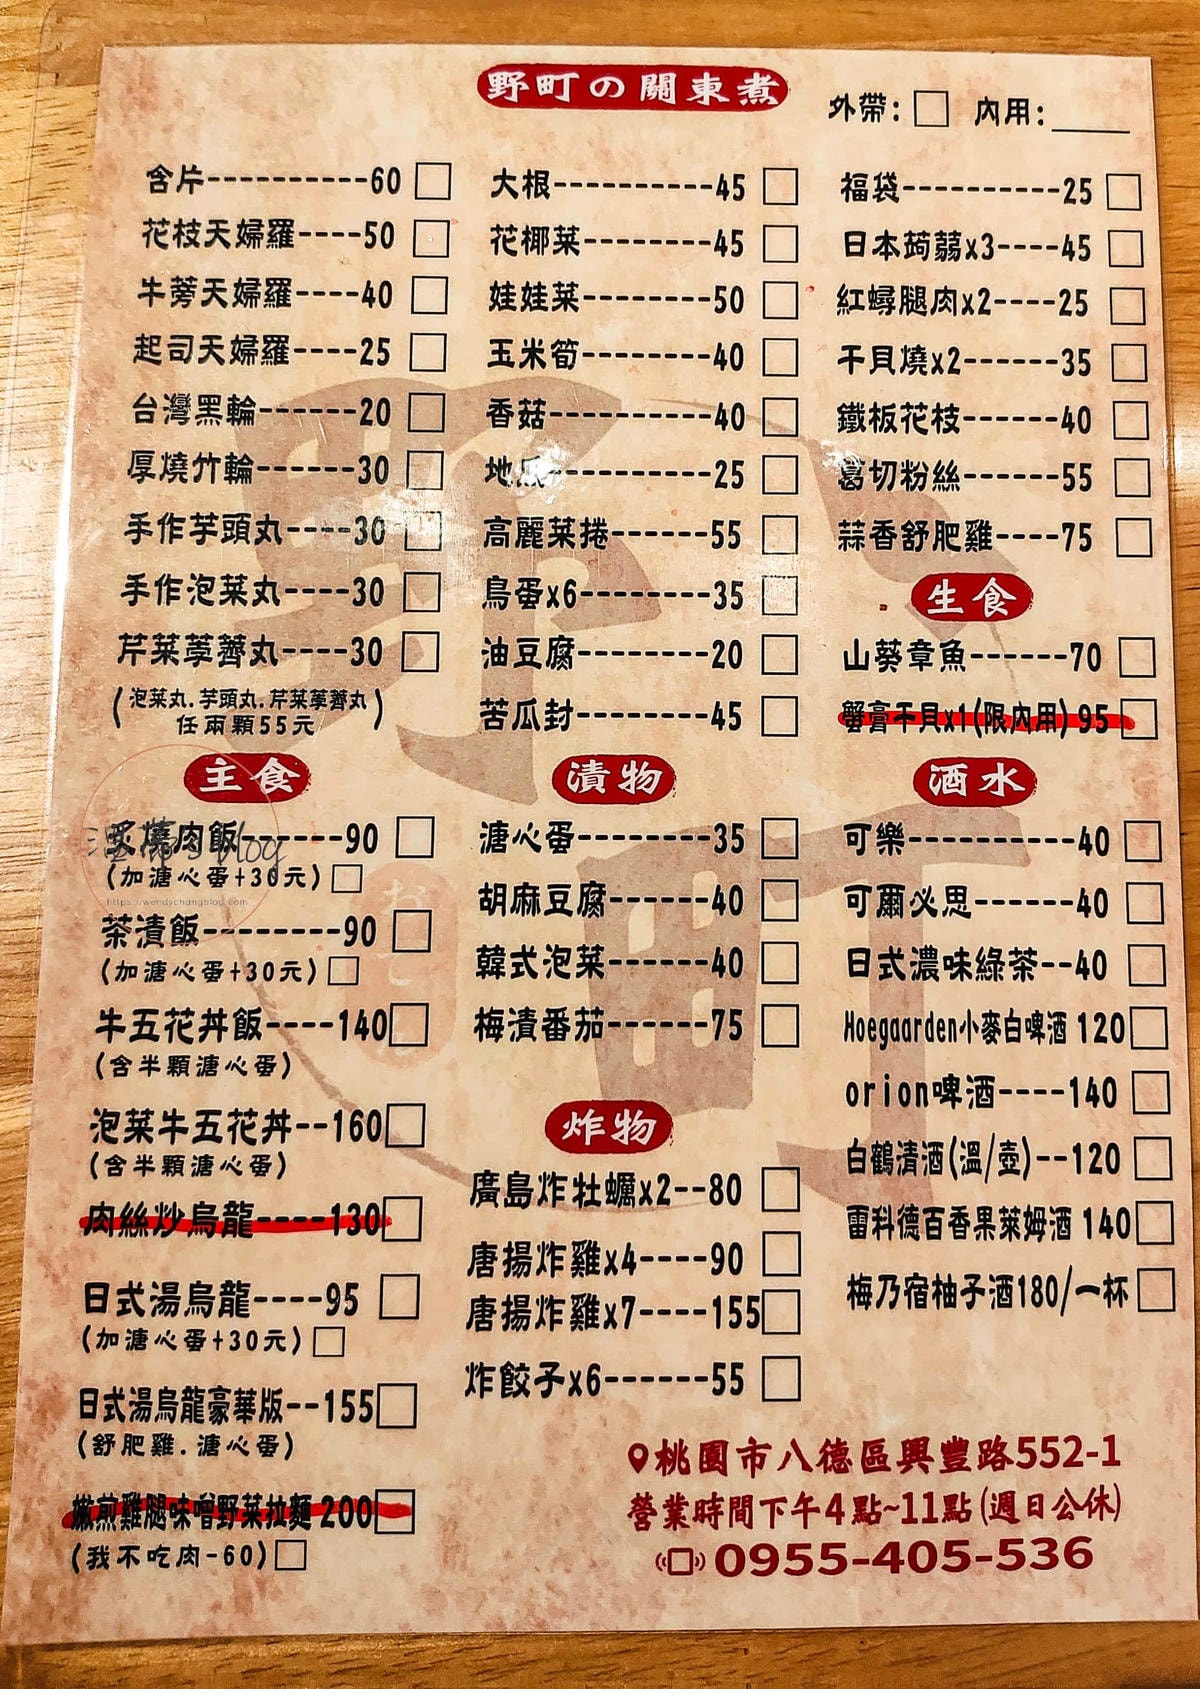 野町の關東煮
外帶:□ 內用:____
含片----------60 □
花枝天婦羅----50 □
牛蒡天婦羅----40 □
起司天婦羅----25 □
台灣黑輪------20 □
厚燒竹輪------30 □
手作芋頭丸----30 □
手作泡菜丸----30 □
芹菜荸薺丸----30 □
(泡菜丸.芋頭丸.芹菜荸薺丸
任兩顆55元)
大根----------45 □
花椰菜--------45 □
娃娃菜--------50 □
玉米筍--------40 □
香菇----------40 □
地瓜----------25 □
高麗菜捲------55 □
鳥蛋x6--------35 □
油豆腐--------20 □
苦瓜封--------45 □
福袋----------25 □
日本蒟蒻x3----45 □
紅蟳腿肉x2----25 □
干貝燒x2------35 □
鐵板花枝------40 □
葛切粉絲------55 □
蒜香舒肥雞----75 □
生食
山葵章魚------70 □
蟹膏干貝x1(限內用)95 □
主食
炙燒肉飯------90 □
(加溏心蛋+30元)□
茶漬飯--------90 □
(加溏心蛋+30元)□
牛五花丼飯----140□
(含半顆溏心蛋)
泡菜牛五花丼--160□
(含半顆溏心蛋)
肉絲炒烏龍----130□
日式湯烏龍----95 □
(加溏心蛋+30元)□
日式湯烏龍豪華版--155□
(舒肥雞.溏心蛋)
嫩煎雞腿味噌野菜拉麵200□
(我不吃肉-60)□
漬物
溏心蛋--------35 □
胡麻豆腐------40 □
韓式泡菜------40 □
梅漬番茄------75 □
炸物
廣島炸牡蠣x2--80 □
唐揚炸雞x4----90 □
唐揚炸雞x7----155□
炸餃子x6------55 □
酒水
可樂----------40 □
可爾必思------40 □
日式濃味綠茶--40 □
Hoegaarden小麥白啤酒 120□
orion啤酒----140 □
白鶴清酒(溫/壺)--120 □
雷科德百香果萊姆酒 140□
梅乃宿柚子酒180/一杯 □
桃園市八德區興豐路552-1
營業時間下午4點~11點(週日公休)
0955-405-536
https://wendychangblog.com/